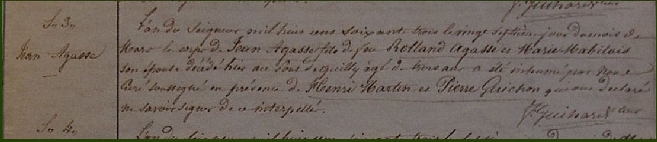 Jguihard
Su 3e
L'an du Seigneur mil huit cens soixant trois le vingt septieme jour du mois de
Jean Agasse
Mars le corps de Jean Agasse fils de feu Rolland Agasse et Marie Mabilais
son épouse décédé hier au de quilly agé de trois ans a été inhumé par Nous
Curé soussigné en présence de Henri Martin et Pierre Gluchon qui ont déclaré
ne savoir signer de ce interpellés.
Jguihard
Su 4e